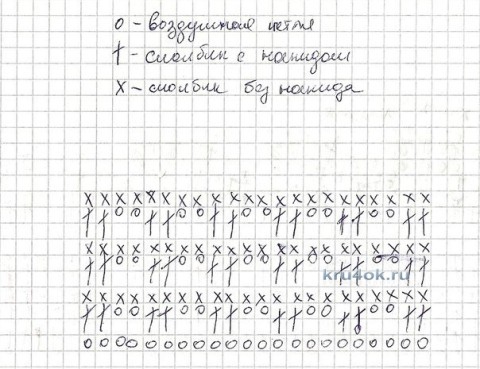 о - воздушная петля
† - столбик с накидом
х - столбик без накида
kru4ok.ru